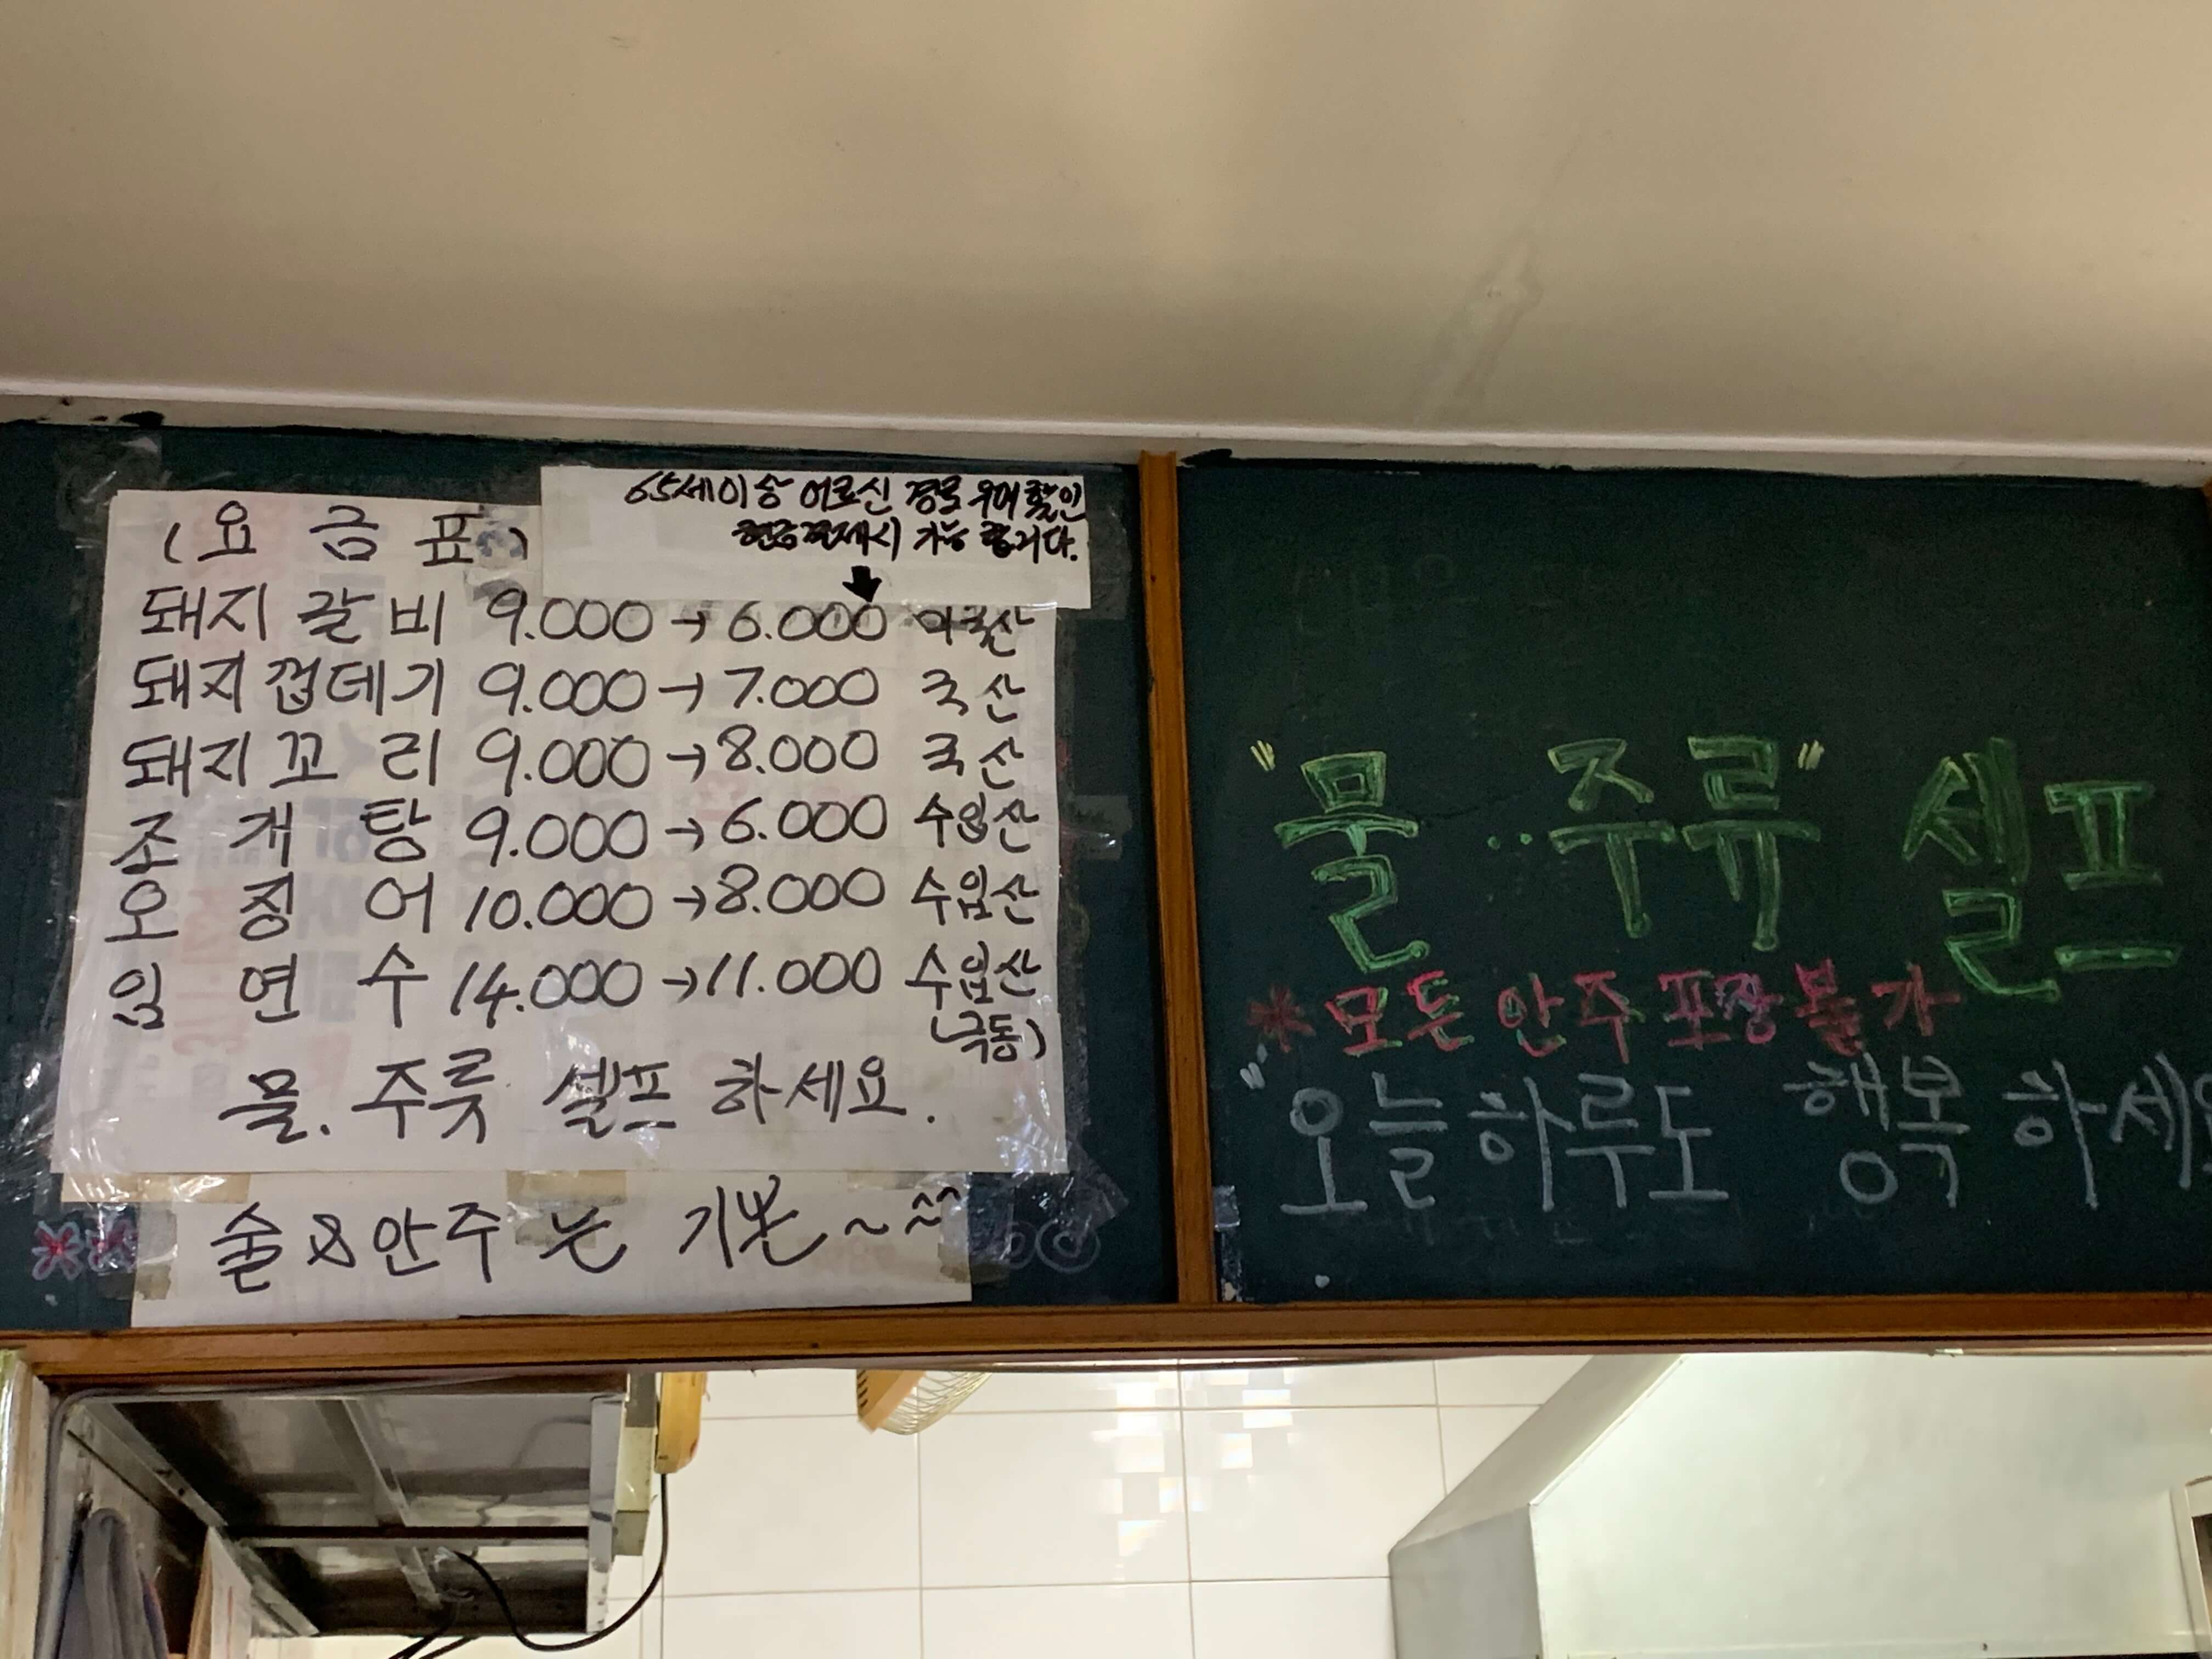 (요금표)
65세이상 어르신 경로우대 할인
현금결제시 가능 합니다.
돼지갈비 9.000→6.000 미국산
돼지껍데기 9.000→7.000 국산
돼지꼬리 9.000→8.000 국산
조개탕 9.000→6.000 수입산
오징어 10.000→8.000 수입산
임연수 14.000→11.000 수입산
(극동)
물. 주륫 셀프 하세요.
술&안주는 기본~^^
"물..주류" 셀프
*모든안주포장불가
"오늘하루도 행복하세요